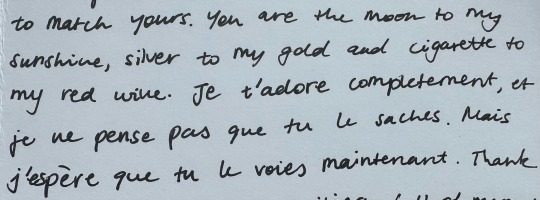 to match yours. You are the moon to my
sunshine, silver to my gold and cigarette to
my red wine. Je t'adore completement, et
je ne pense pas que tu le saches. Mais
j'espère que tu le voies maintenant. Thank